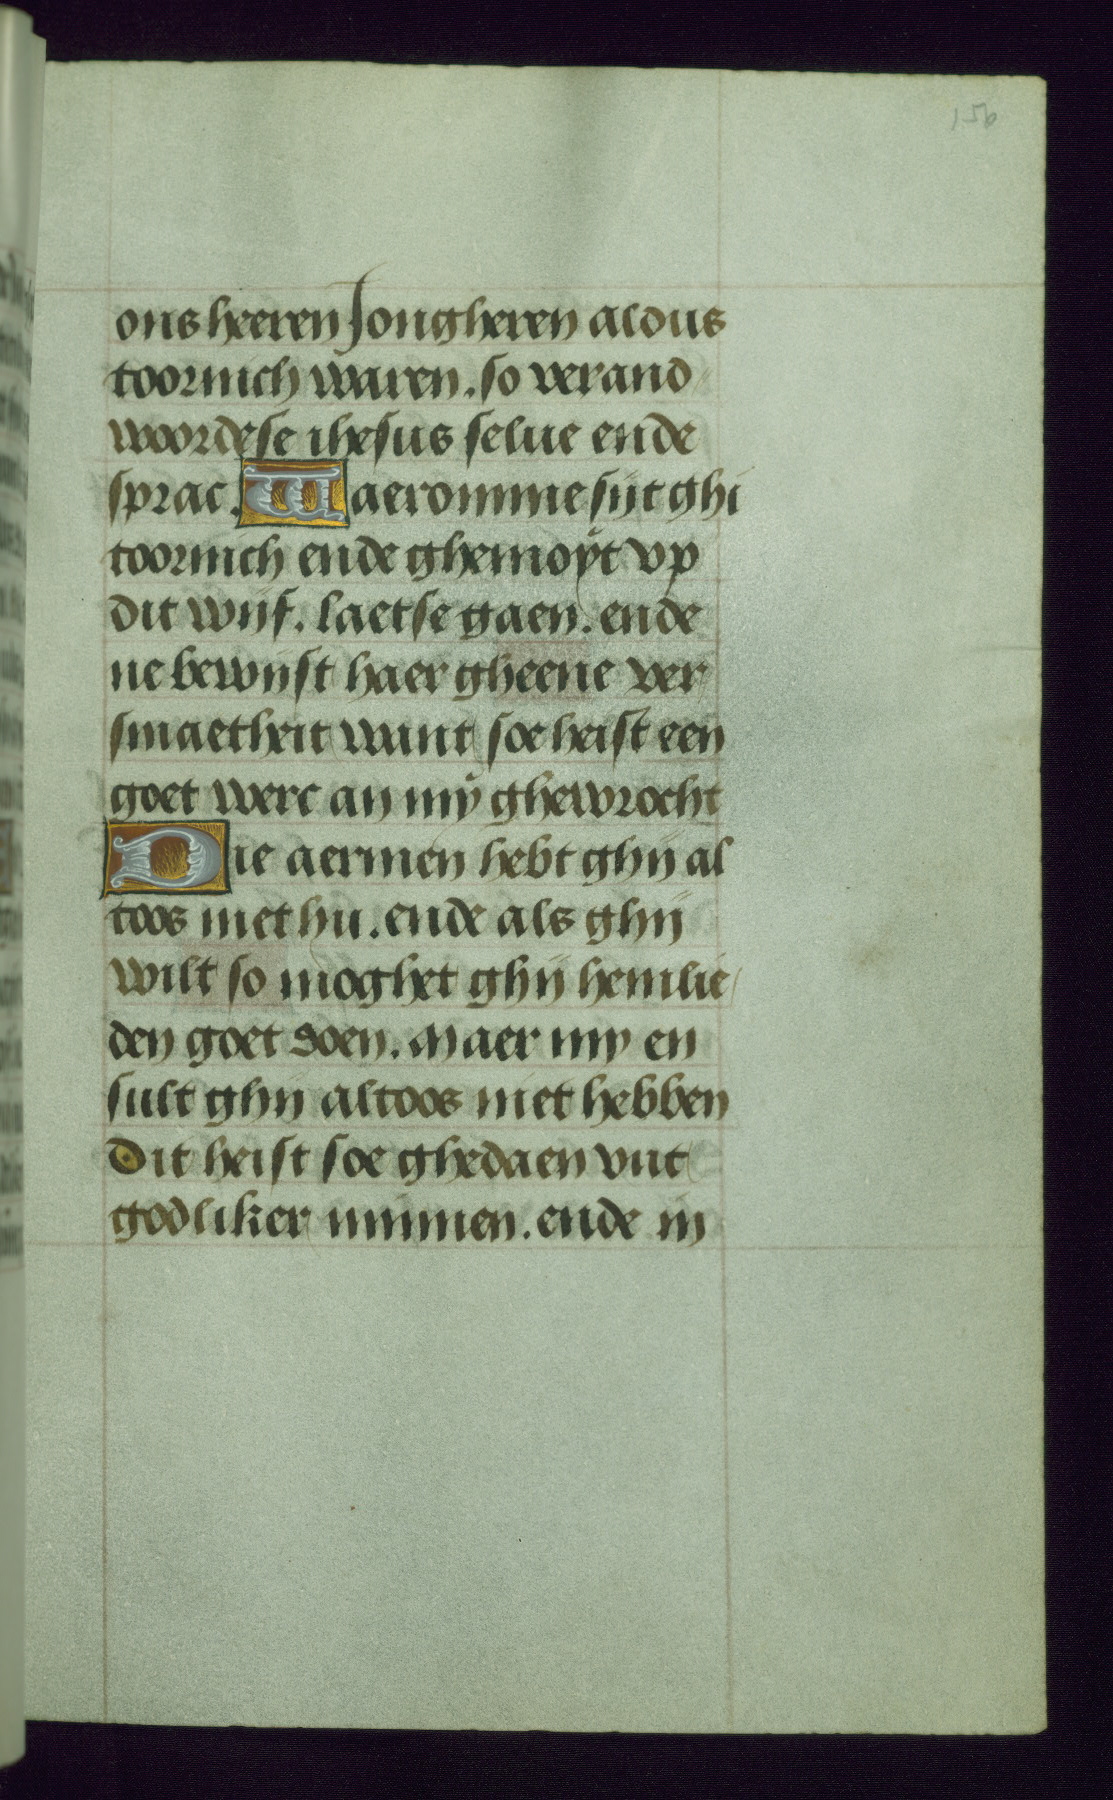 156
ons heeren Jongheren aldus
toornich waren. so verand
woordese ihesus selue ende
sprac. Waeromme sijt ghi
toornich ende ghemoÿt vp
dit wijf. laetse gaen. ende
ne bewijst haer gheene ver
smaetheit want soe heist een
goet werc an mÿ ghewrocht
Die aermen hebt ghij al
toos met hu. ende als ghij
wilt so moghet ghij hemlie
den goet doen. Maer my en
sult ghij altoos niet hebben
Dit heist soe ghedaen vut
godliker minnen. ende in